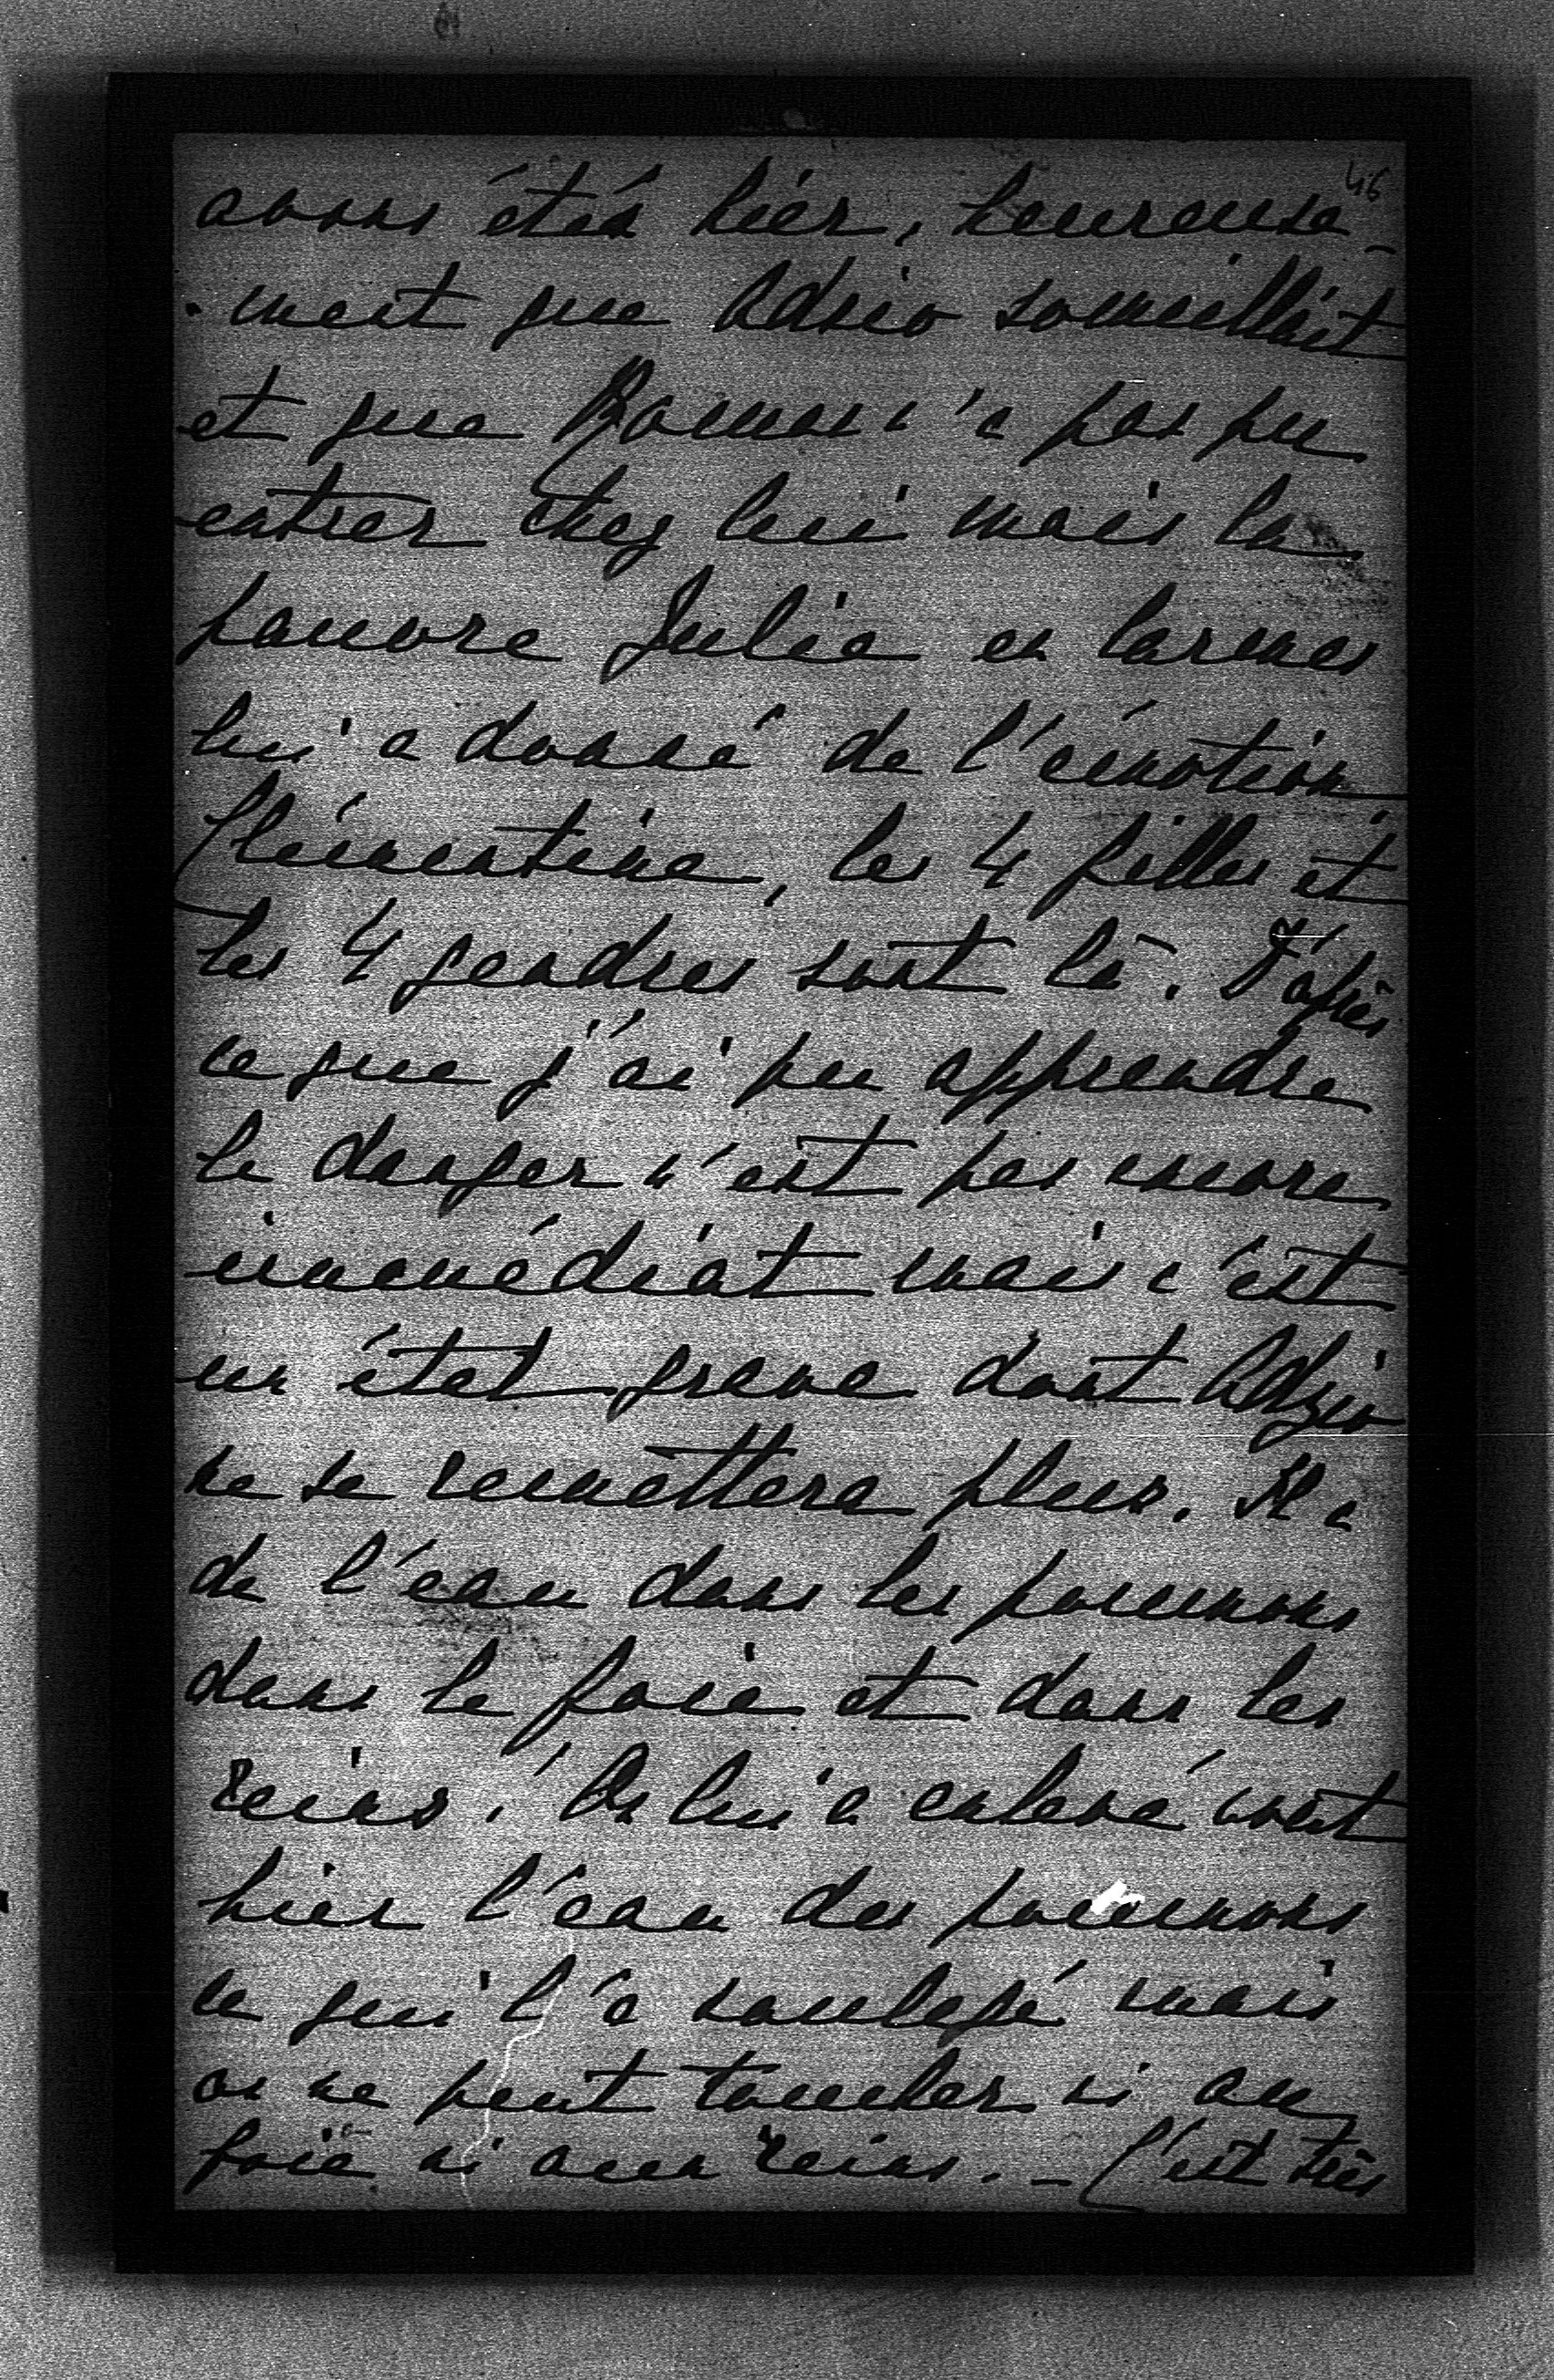 46
avons étés hier, heureuse-
-ment que Adzio someillait
et que Roman n'a pas pu
entrer chez lui mais la
pauvre Julie en larmes
lui a donné de l'émotion
Clémentine, les 4 filles et
les 4 gendres sont là. D'après
ce que j'ai pu apprendre
le danger n'est pas encore
immédiat mais c'est
un état grave dont Adzio
ne se remettera plus. Il a
de l'eau dans les poumons
dans le foie et dans les
reins. On lui a enlevé avant
hier l'eau des poumons
ce qui l'a soulagé mais
on ne peut toucher ni au
foie ni aux reins. - C'est très